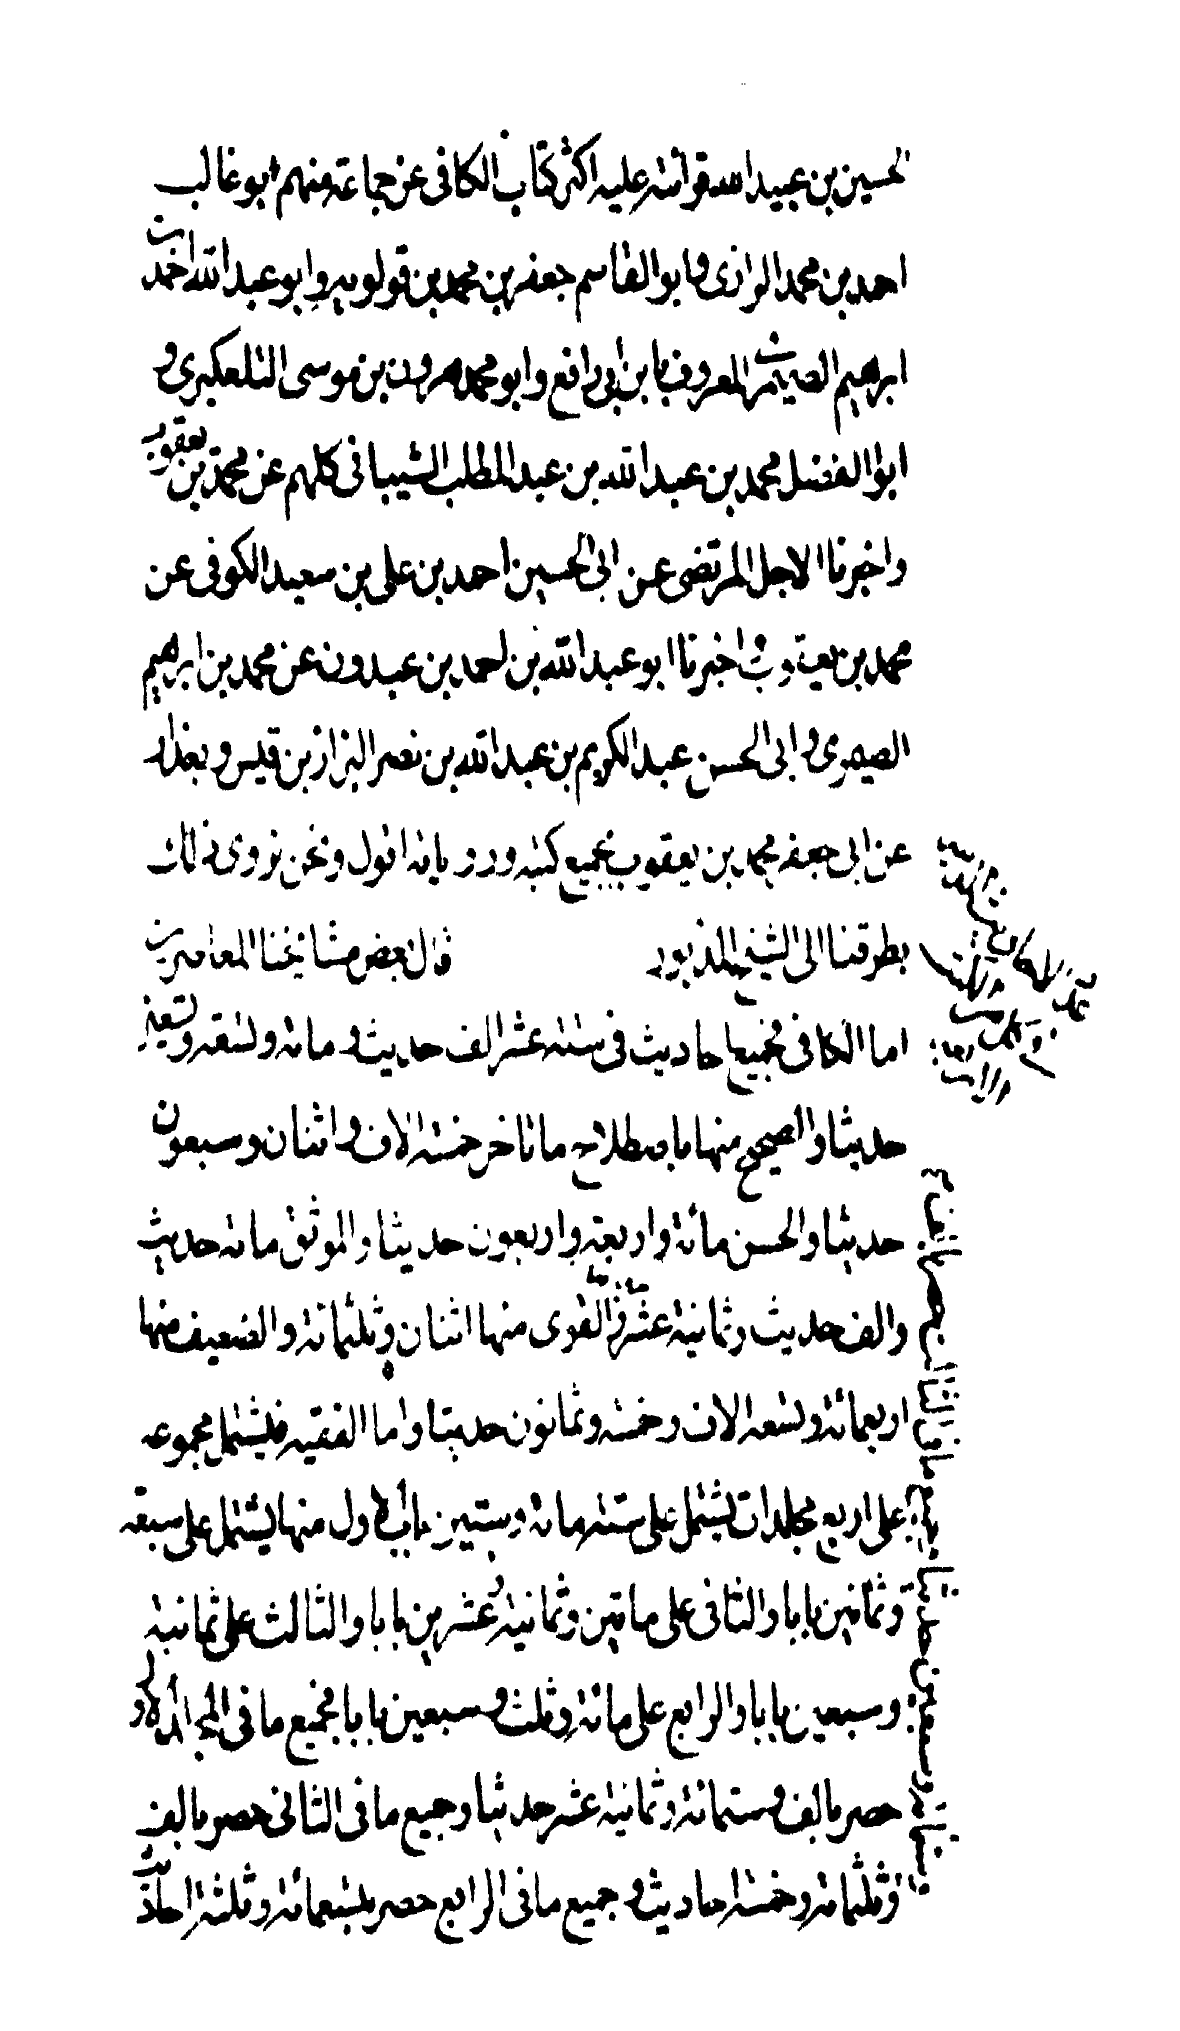 الحسين بن عبيد الله قرائته عليه اكثر كتاب الكافى عن جماعة منهم ابو غالب
احمد بن محمد الرازى وابو القاسم جعفر بن محمد بن قولويه وابو عبد الله احمد بن
ابرهيم الصيمرى المعروف بابن ابى رافع وابو محمد هرون بن موسى التلعكبرى و
ابو الفضل محمد بن عبد الله بن عبد المطلب الشيبانى كلهم عن محمد بن يعقوب
واخبرنا الاجل المرتضى عن ابى الحسين احمد بن على بن سعيد الكوفى عن
محمد بن يعقوب واخبرنا ابو عبد الله بن احمد بن عبدون عن محمد بن ابرهيم
الصيمرى و ابى الحسن عبد الكريم بن عبد الله بن نصر البزاز بن قيس وبغداد
عن ابى جعفر محمد بن يعقوب بجميع كتبه ورواياته اقول ونحن نروى ذلك
بطرقنا الى الشيخ المذبور قال بعض مشايخنا المعاصرين
اما الكافى فجميع احاديث فى ستة عشر الف حديث و مائة وتسعة وتسعين
حديثا والصحيح منها باصطلاح ما تاخر خمسة الاف و اثنان وسبعون
حديثا والحسن مائة واربعة واربعون حديثا والموثق مائة حديث
والف حديث وثمانية عشر والقوى منها اثنان وثلثمائة والضعيف منها
اربعمائة وتسعة الاف وخمسة وثمانون حديثا واما الفقيه فيشتمل مجموعه
على اربع مجلدات تشتمل على ستة مائة وستين بابا الاول منها يشتمل على سبعة
وثمانين بابا والثانى على مائتين وثمانية وعشرين بابا والثالث على ثمانية
وسبعين بابا والرابع على مائة وثلث وسبعين بابا فجميع ما فى المجلد الاول
حصر بالف وستمائة وثمانية عشر حديثا وجميع ما فى الثانى حصر بالف
وثلثمائة وخمسة احاديث و جميع ما فى الرابع حصر بتسعمائة وثلثة احاديث
وجميع ما فى الثالث حصر بالف